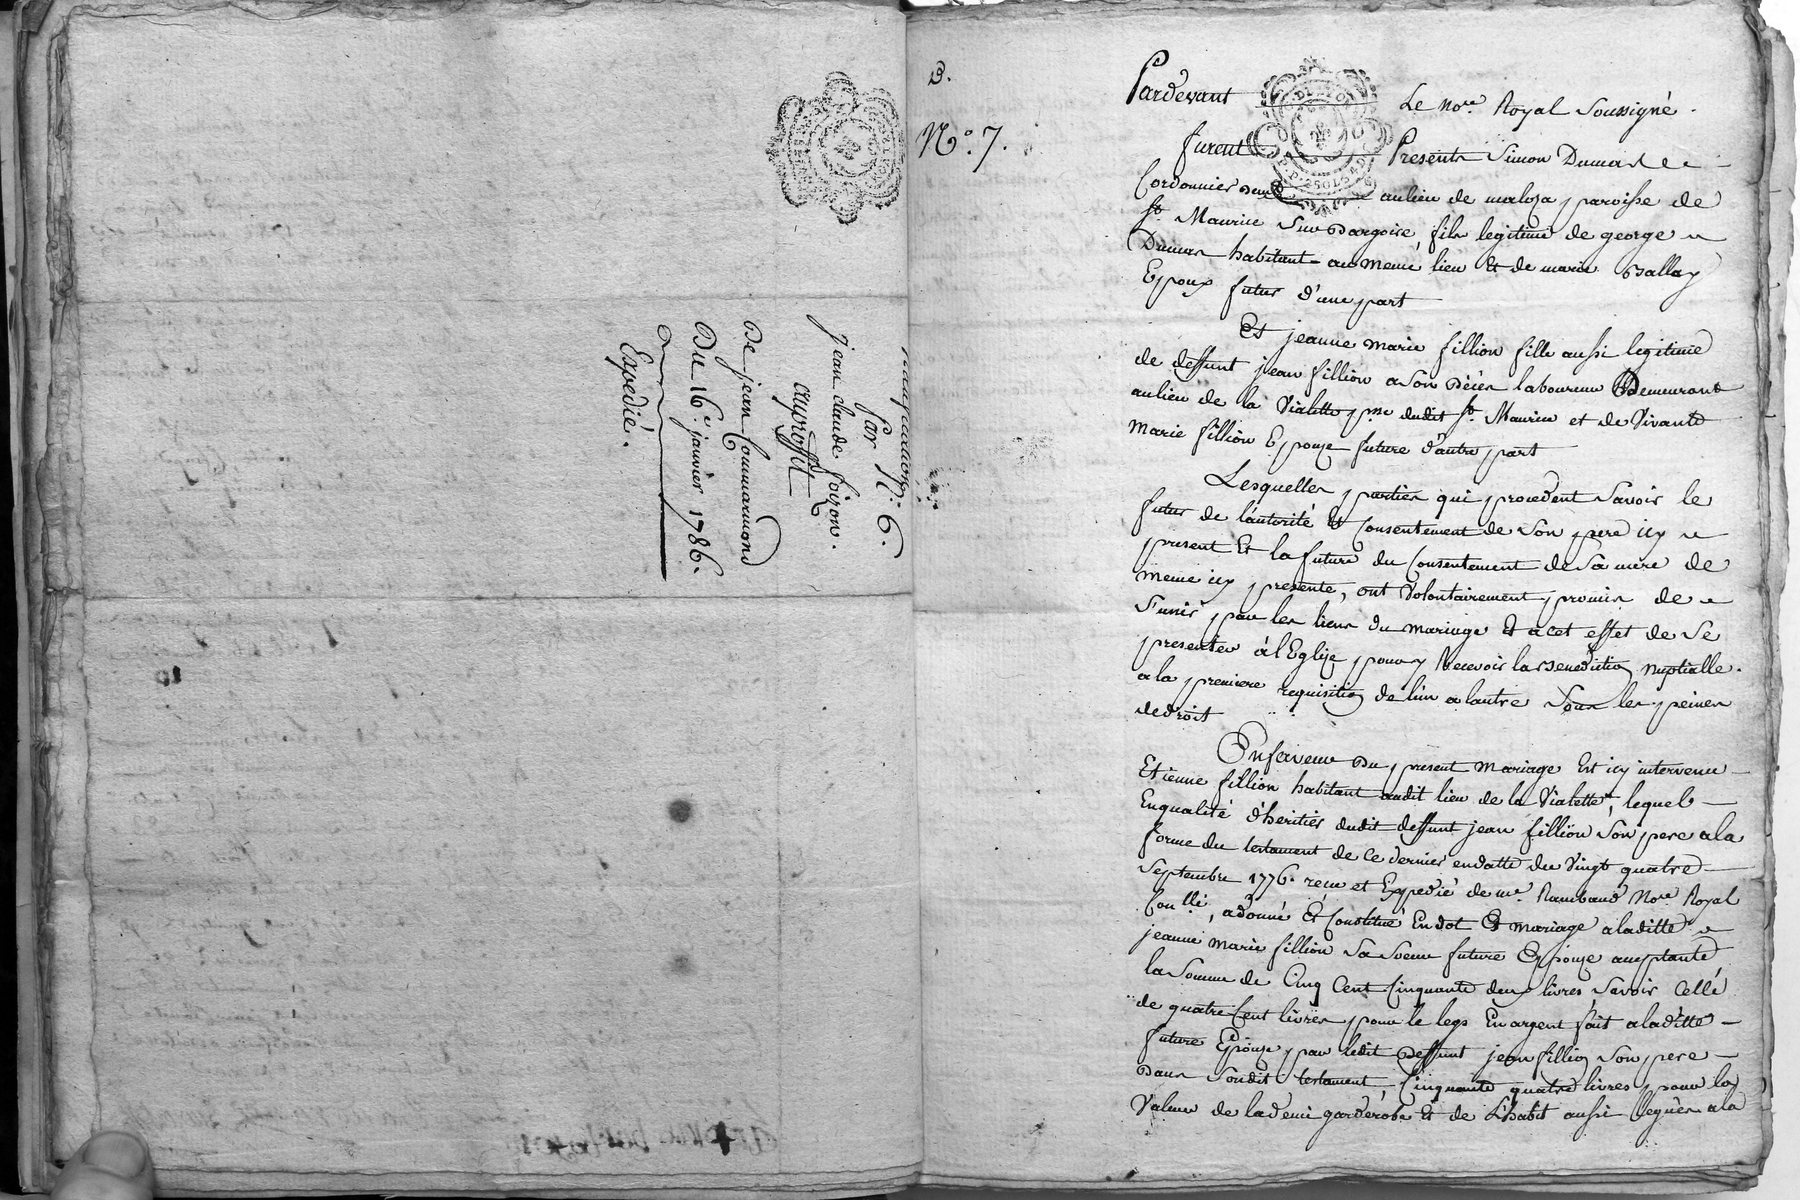 N.º 6.
Par
jean claude foizon.
auproffit
De jean Commarmond
Du 16e. janvier 1786.
Expedié.
D.
N.º 7.
Pardevant Le Nore. Royal Soussigné.
furent Presents Simon Dumas
Cordonnier demt. au lieu de paroisse de
St. Maurice Sur Dargoire, fils legitime de george
Dumas habitant au meme lieu Et de marie Ballay
Epoux futur d'une part
Et jeanne marie fillion fille aussi legitime
de deffunt jean fillion a son décès laboureur Demeurant
au lieu de la Vialette psse dudit St. Maurice et de Vivante
Marie fillion Epouze future d'autre part
Lesquelles parties qui procedent Savoir le
futur de l'autorité Et Consentement de Son pere icy
present Et la future du Consentement de Sa mere de
meme icy presente, ont Volontairement promis de
S'unir par les liens du mariage Et a cet effet de Se
presenter à l'Eglize pour y Recevoir la Benediction Nuptialle.
a la premiere requisition de l'un a l'autre Sous les peines
de droit
En faveur Du present Mariage Est icy intervenu
Etienne fillion habitant audit lieu de la Vialette, lequel
En qualité d'heritier dudit deffunt jean fillion Son pere a la
forme du testament de ce dernier en datte du Vingt quatre
Septembre 1776. recu et Expedié de me. Rambaud Nore Royal
, a donné Et Constitué En dot Et mariage a laditte
jeanne marie fillion Sa Soeur future Epouze acceptante
la Somme de Cinq Cent Cinquante deux livres Savoir Cellé
de quatre Cent livres pour le legs En argent fait a laditte
future Epouze par ledit Deffunt jean fillion Son pere
Dans Sondit testament Cinquante quatre livres pour la
Valeur de la demi garderobe Et de L'habit aussi legués a la